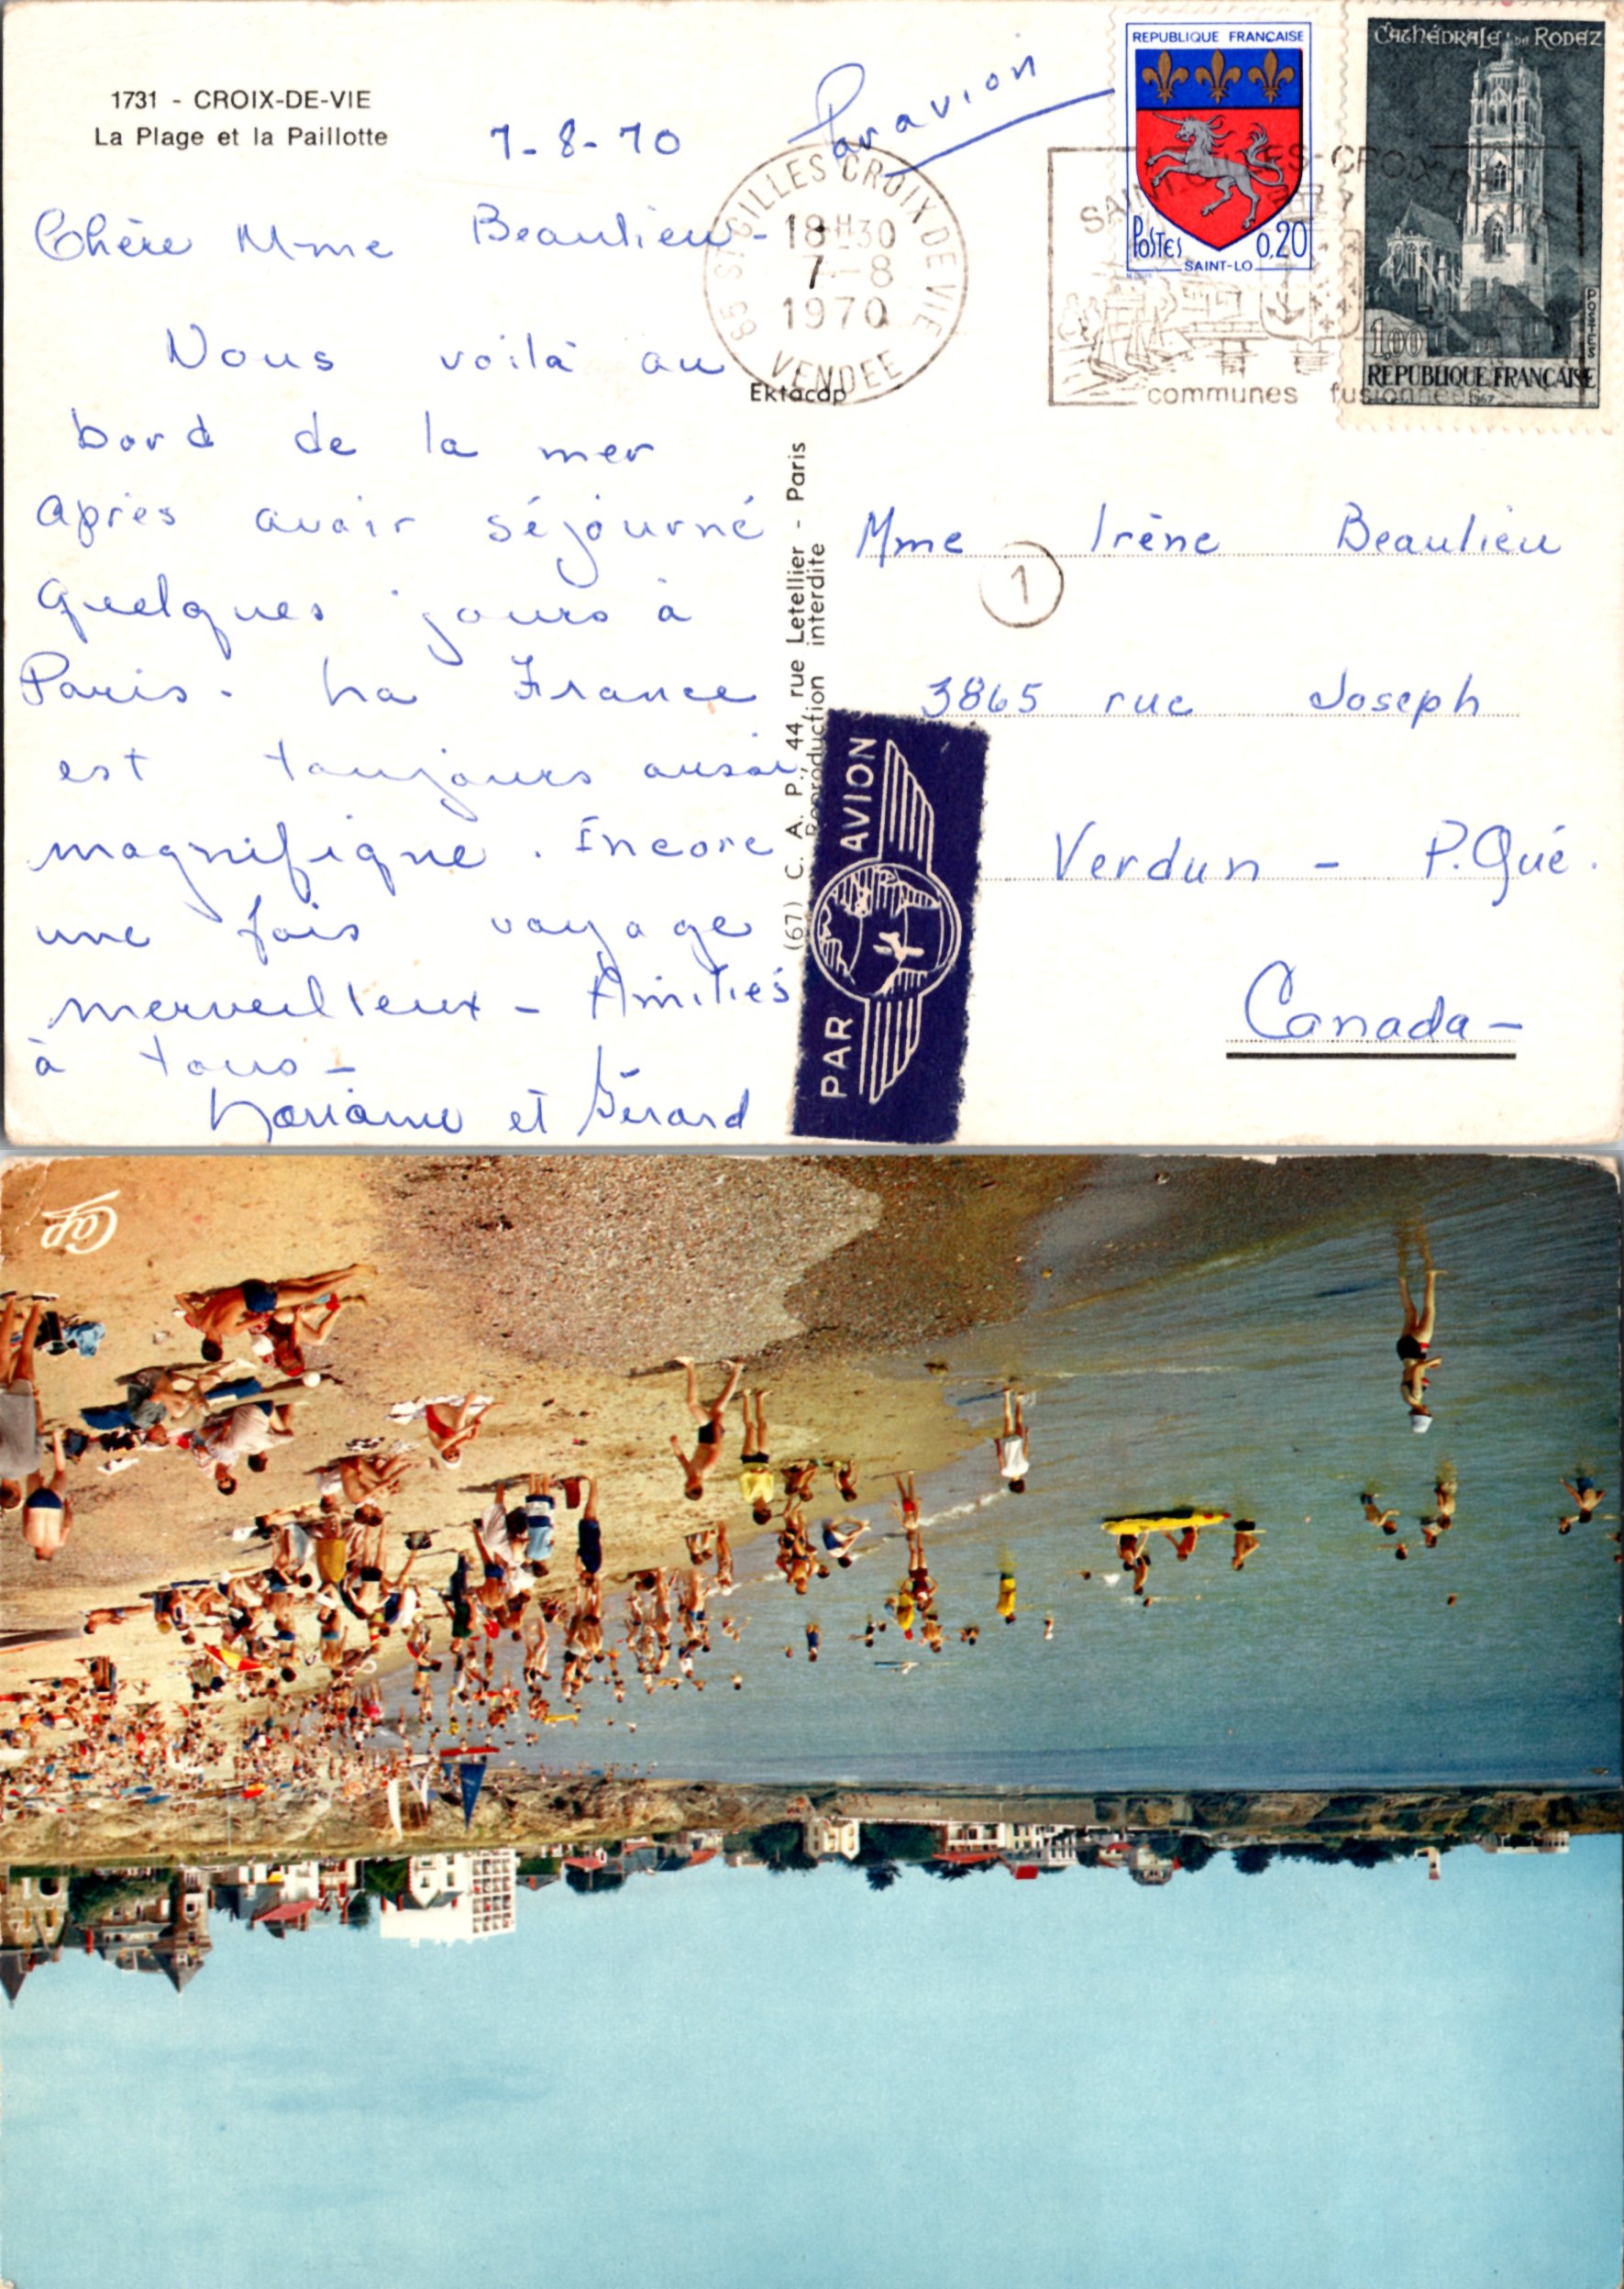 1731 - CROIX-DE-VIE
La Plage et la Paillotte
7-8-70
Par avion
Chère Mme Beaulieu-
Nous voilà au
bord de la mer
après avoir séjourné
quelques jours à
Paris. La France
est toujours aussi
magnifique. Encore
une fois voyage
merveilleux - Amitiés
à tous -
et Gérard
85 ST GILLES CROIX DE VIE
18H30
7-8
1970
VENDEE
Ektacap
SAINT-GILLES-CROIX-DE-
communes fusionnées
REPUBLIQUE FRANÇAISE
POSTES 0,20
SAINT-LO
CATHÉDRALE DE RODEZ
POSTES
1,00
REPUBLIQUE FRANÇAISE
1967
(67) C. A. P., 44, rue Letellier - Paris
Reproduction interdite
PAR AVION
Mme Irène Beaulieu
1
3865 rue Joseph
Verdun - P. Qué.
Canada-
Cap